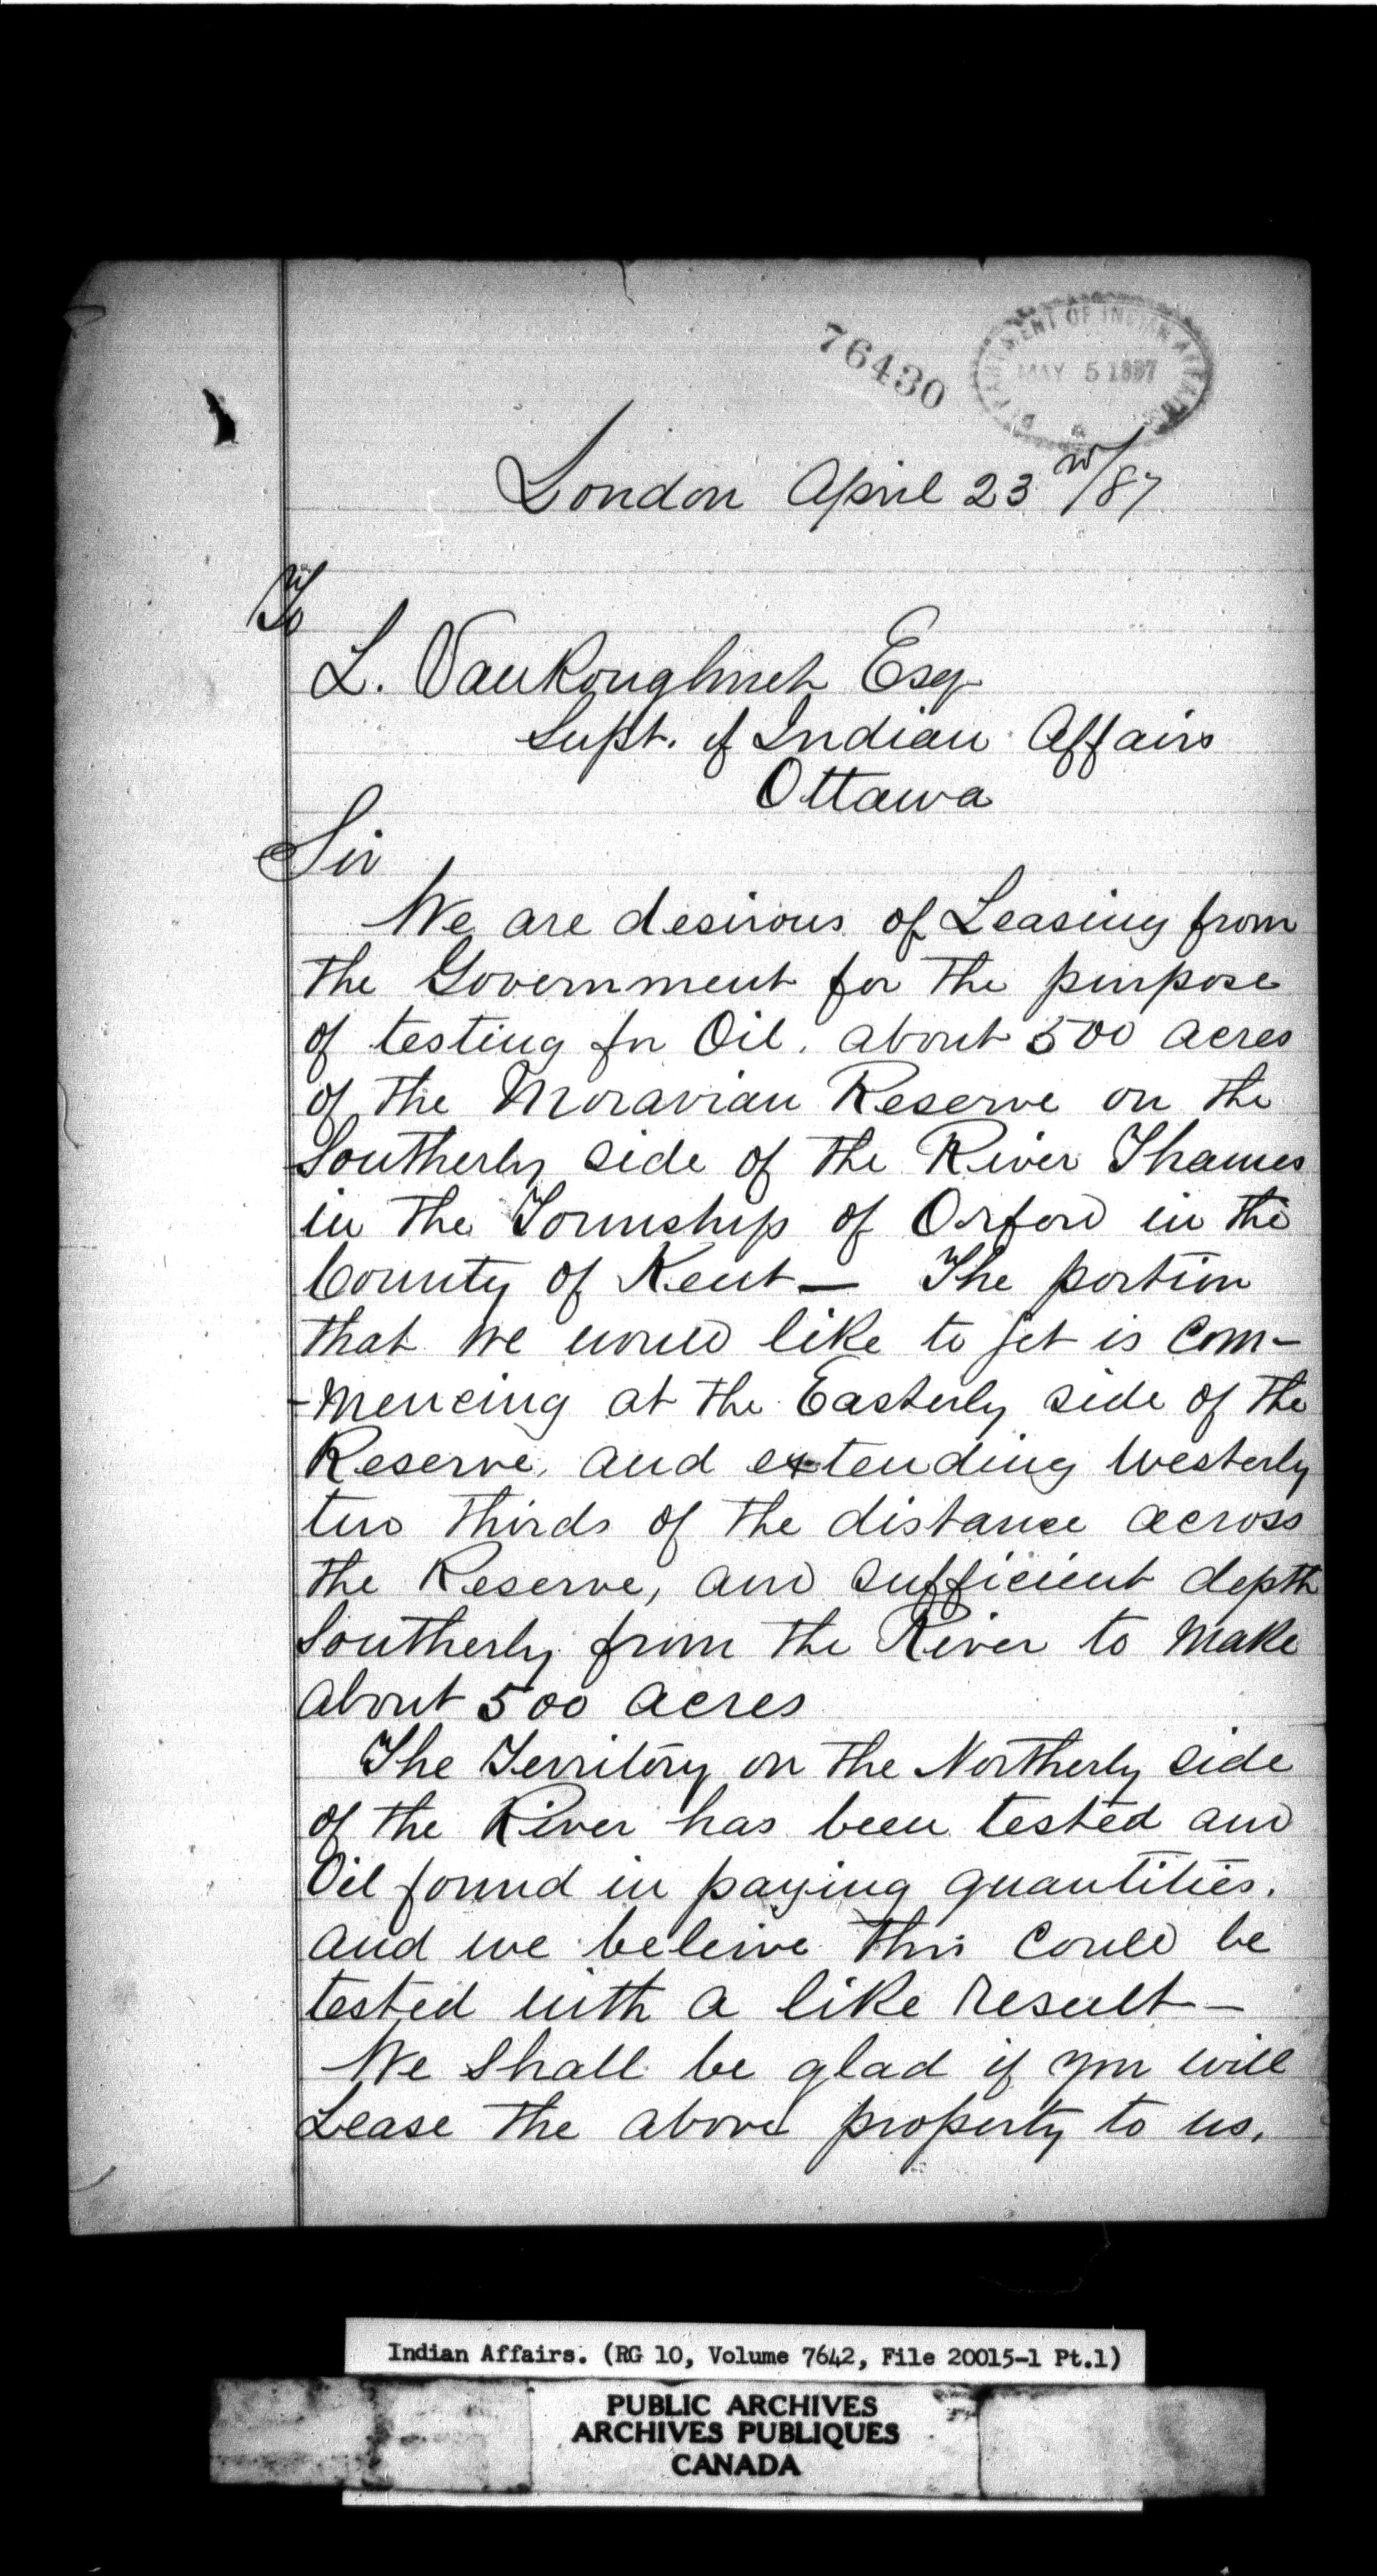 76430
DEPARTMENT OF INDIAN AFFAIRS
MAY 5 1887
London April 23rd/87
To
L. VanKoughnet Esq
Supt. of Indian Affairs
Ottawa
Sir
We are desirous of Leasing from
the Government for the purpose
of testing for Oil. about 500 acres
of the Moravian Reserve on the
Southerly side of the River Thames
in the Township of Orford in the
County of Kent — The portion
that we would like to get is com-
-mencing at the Easterly side of the
Reserve, and extending Westerly
two thirds of the distance across
the Reserve, and sufficient depth
Southerly from the River to make
about 500 acres
The Territory on the Northerly side
of the River has been tested and
Oil found in paying quantities.
and we beleive this could be
tested with a like result —
We shall be glad if you will
Lease the above property to us.
Indian Affairs. (RG 10, Volume 7642, File 20015-1 Pt.1)
PUBLIC ARCHIVES
ARCHIVES PUBLIQUES
CANADA